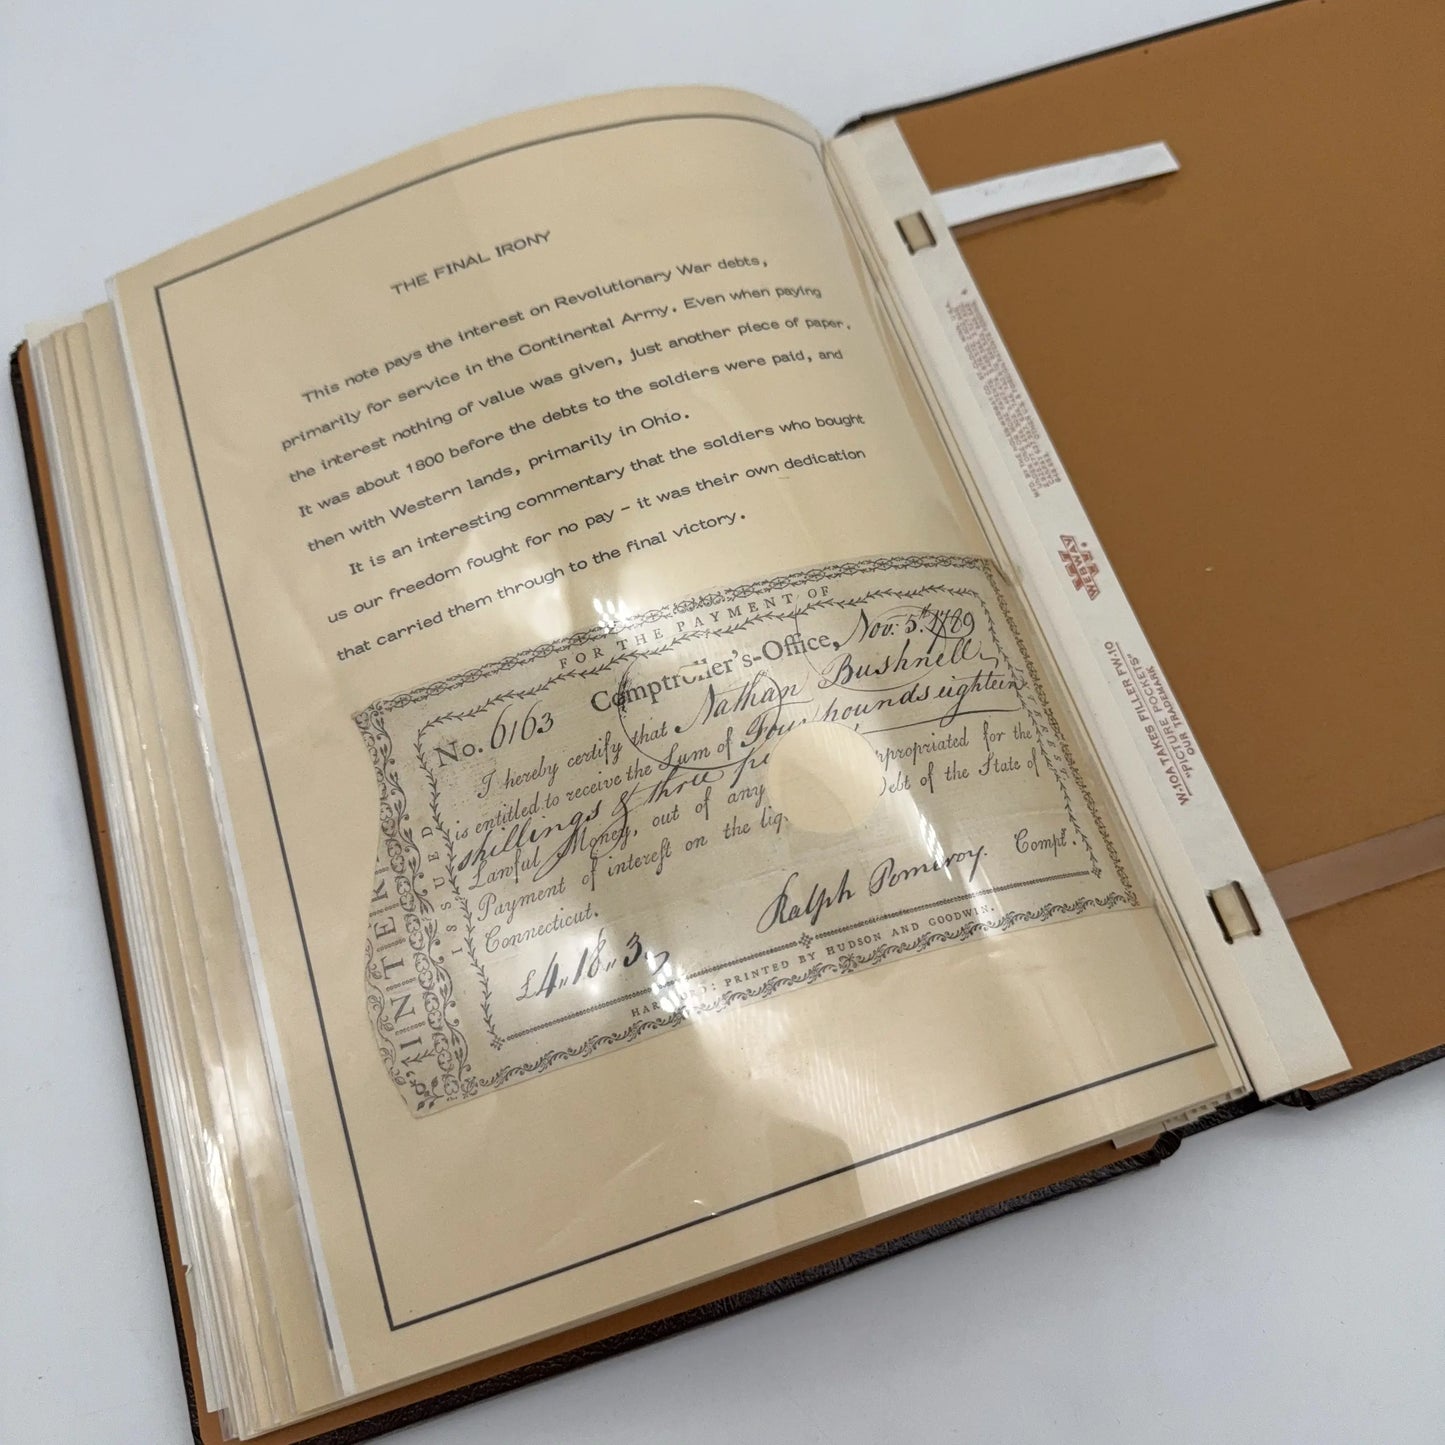 THE FINAL IRONY
This note pays the interest on Revolutionary War debts,
primarily for service in the Continental Army. Even when paying
the interest nothing of value was given, just another piece of paper.
It was about 1800 before the debts to the soldiers were paid, and
then with Western lands, primarily in Ohio.
It is an interesting commentary that the soldiers who bought
us our freedom fought for no pay - it was their own dedication
that carried them through to the final victory.
FOR THE PAYMENT OF
INTER
ISSUED
No. 6163
Comptroller's-Office, Nov: 5th 1789
I hereby certify that Nathan Bushnell
is entitled to receive the Sum of Four pounds eighteen
shillings & three pe
Lawful Money, out of any appropriated for the
Payment of interest on the liq. Debt of the State of
Connecticut.
£4,, 18,, 3
Ralph Pomeroy. Compt.
HARTFORD: PRINTED BY HUDSON AND GOODWIN.
WEBWAY
W-10A TAKES FILLER PW-10
"PICTURE POCKETS"
OUR TRADEMARK